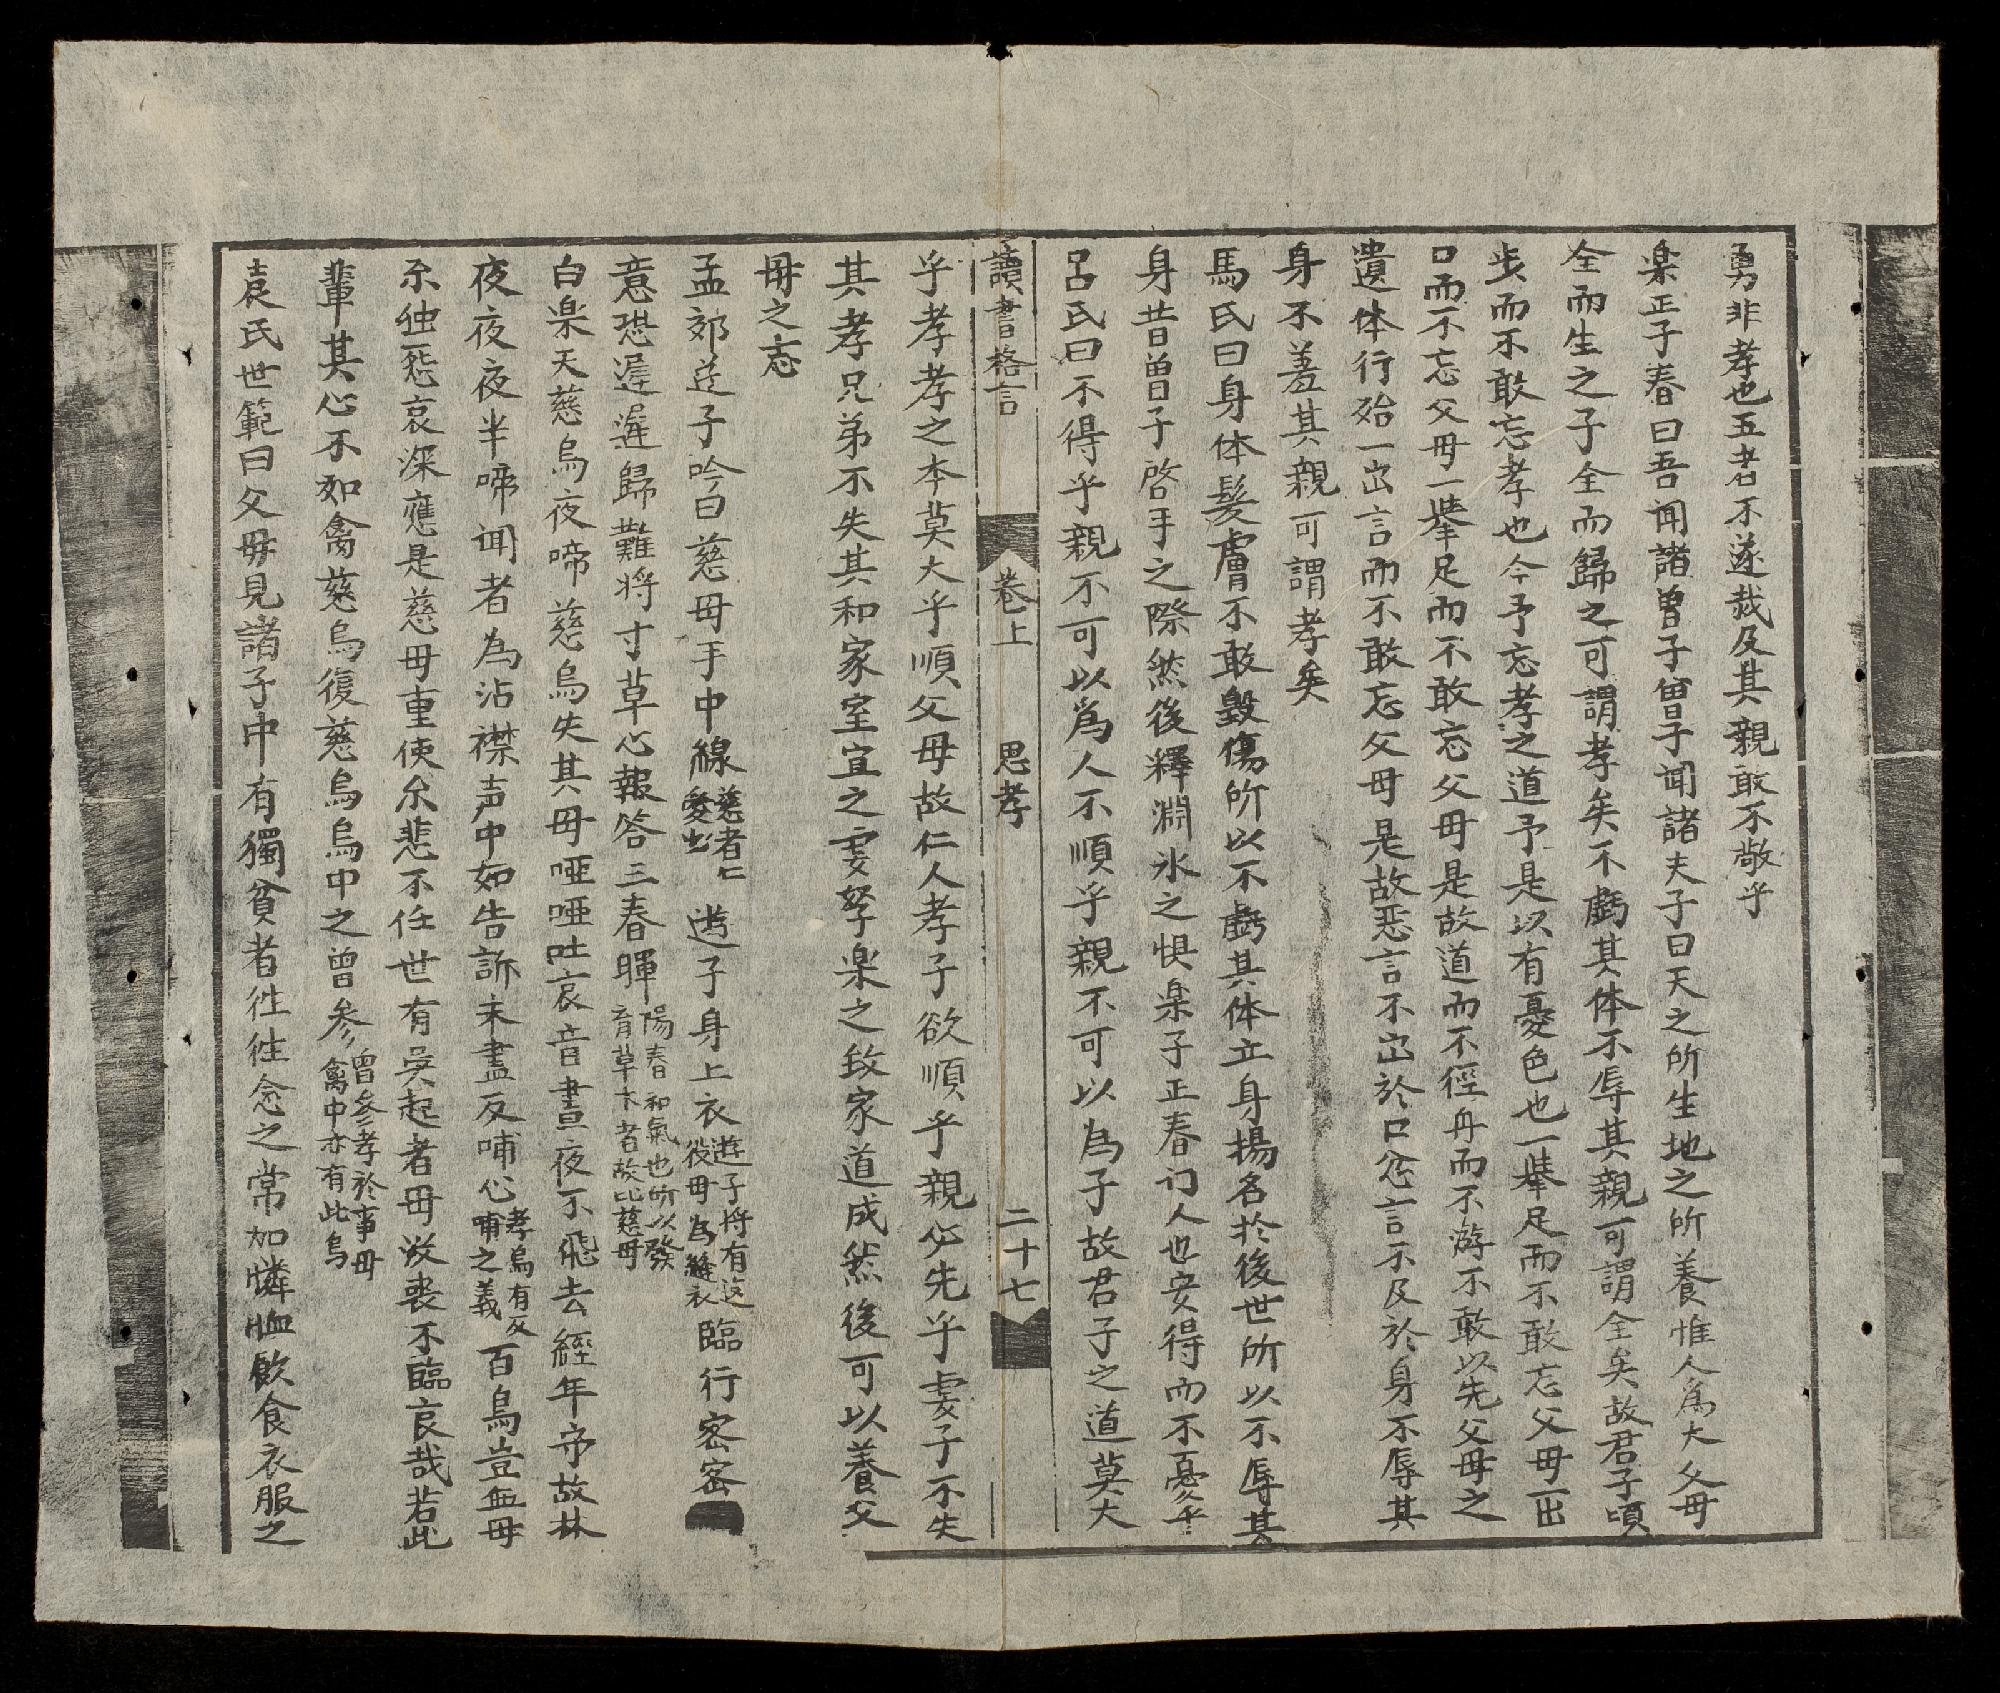 勇非孝也五者不遂烖及其親敢不敬乎
楽正子春曰吾闻諸曽子曽子闻諸夫子曰天之所生地之所養惟人爲大父母
全而生之子全而歸之可謂孝矣不虧其体不辱其親可謂全矣故君子頃
歩而不敢忘孝也今予忘孝之道予是以有憂色也一舉足而不敢忘父母一出
口而不忘父母一舉足而不敢忘父母是故道而不徑舟而不游不敢以先父母之
遺体行殆一出言而不敢忘父母是故惡言不出於口忿言不及於身不辱其
身不羞其親可謂孝矣
馬氏曰身体髪膚不敢毀傷所以不虧其体立身揚名於後世所以不辱其
身昔曽子啓手之際然後釋淵氷之惧楽子正春门人也安得而不憂乎
呂氏曰不得乎親不可以爲人不順乎親不可以為子故君子之道莫大
讀書格言 卷上 思孝 二十七
乎孝孝之本莫大乎順父母故仁人孝子欲順乎親必先乎妻子不失
其孝兄弟不失其和家室宜之妻孥楽之致家道成然後可以養父
母之志
孟郊逰子吟曰慈母手中線慈者仁愛也逰子身上衣逰子将有逺役母為縫衣臨行密密
意恐遲遲歸難将寸草心報答三春暉陽春和氣也所以發育草木者故比慈母
白楽天慈烏夜啼慈烏失其母哑哑吐哀音晝夜不飛去經年守故林
夜夜夜半啼闻者為沾襟声中如告訴未盡反哺心孝烏有反哺之義百鳥豈無母
尒独怨哀深應是慈母重使尒悲不任世有吳起者母沒喪不臨哀哉若此
輩其心不如禽慈烏復慈烏烏中之曽参曽參孝於事母禽中亦有此烏
袁氏世範曰父母見諸子中有獨貧者徃徃念之常加憐恤飲食衣服之